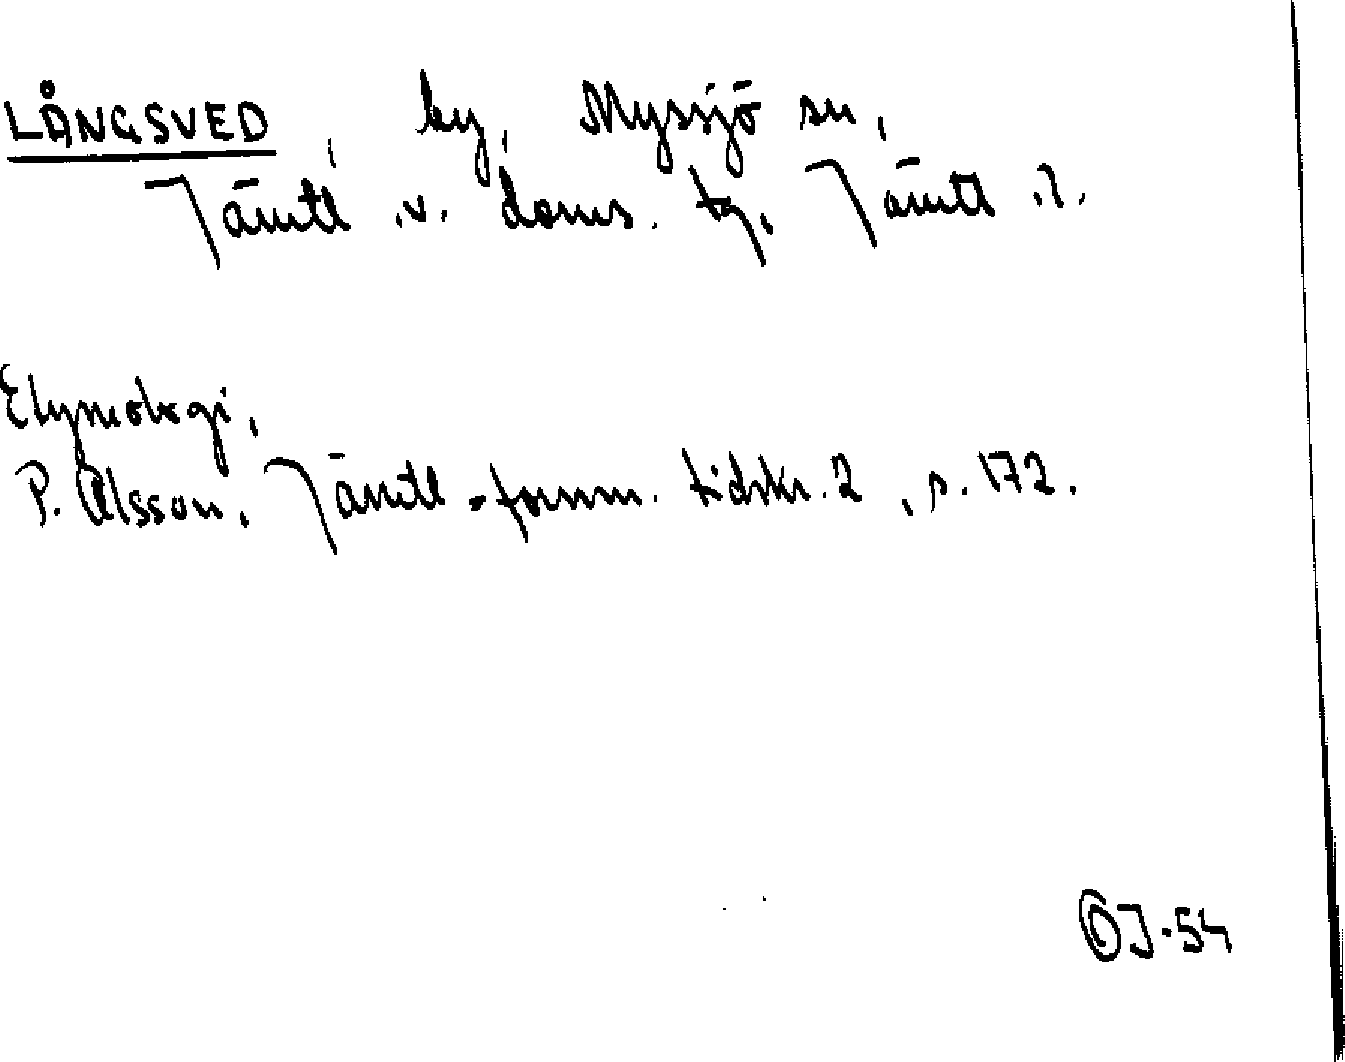 LÅNGSVED, by, Myssjö sn,
Jämtl. v. doms. tg. Jämtl. l.
Etymologi,
P. Olsson, Jämtl. fornm. tidskr. 2, s. 172.
OJ-54